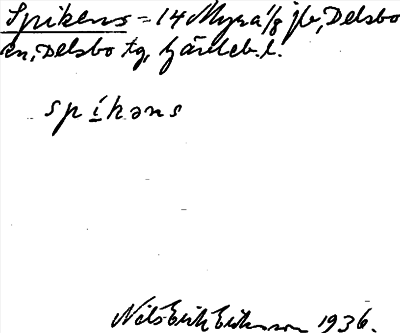 Spikens = 14 Myra 1/8 jb, Delsbo
sn, Delsbo tg, Gävleb. l.
spikəns
Nils Erik Eriksson 1936.